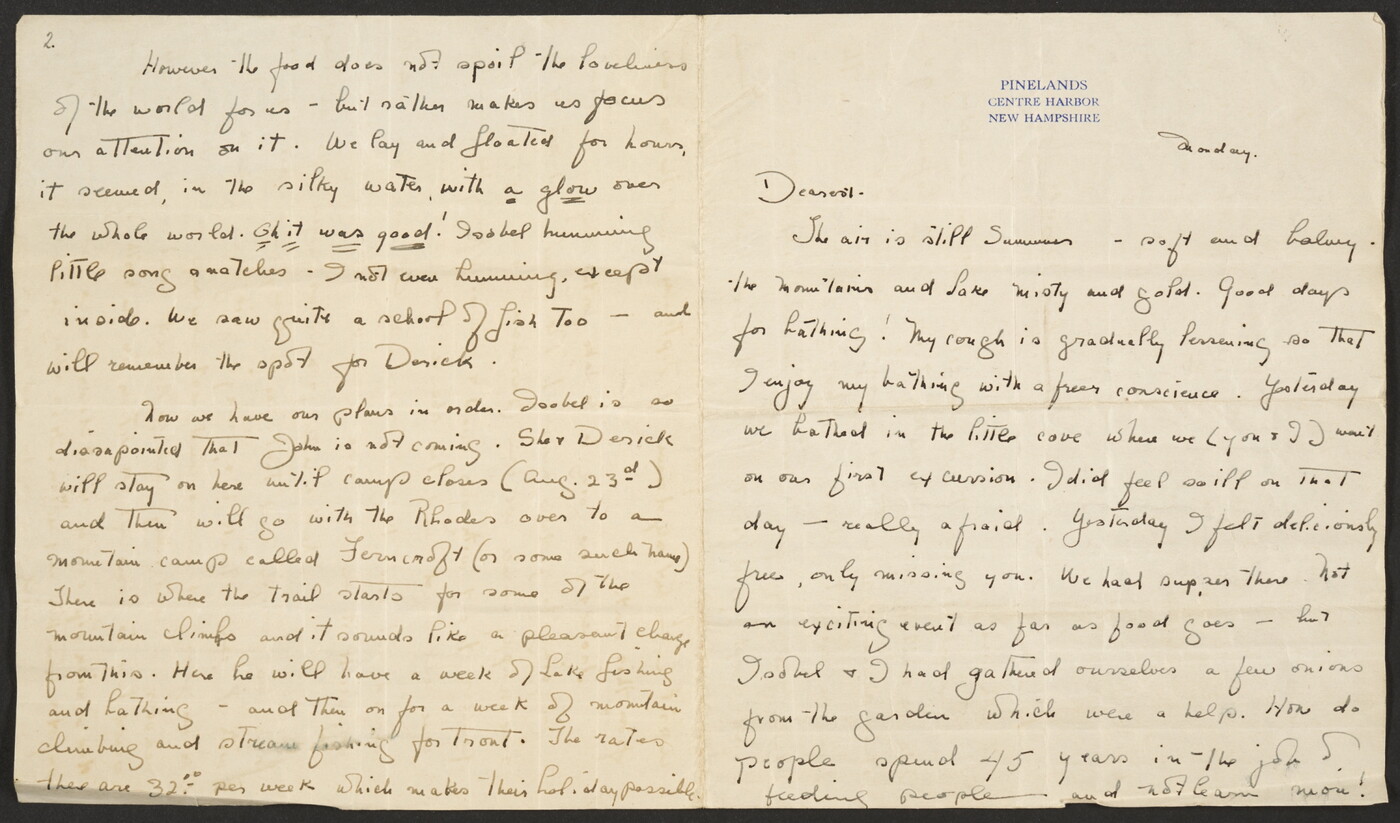 PINELANDS
CENTRE HARBOR
NEW HAMPSHIRE
Monday.
Dearest-
The air is still Summer - soft and balmy -
the mountains and Lake misty and gold. Good days
for bathing! My cough is gradually lessening so that
I enjoy my bathing with a freer conscience. Yesterday
we bathed in the little cove where we (you & I) went
on our first excursion. I did feel so ill on that
day - really afraid. Yesterday I felt deliciously
free, only missing you. We had supper there. Not
an exciting event as far as food goes - but
Isobel & I had gathered ourselves a few onions
from the garden which were a help. How do
people spend 45 years in the job of
feeding people and not learn more!
2.
However the food does not spoil the loveliness
of the world for us - but rather makes us focus
our attention on it. We lay and floated for hours,
it seemed, in the silky water, with a glow over
the whole world. Oh it was good! Isobel humming
little song snatches - I not even humming, except
inside. We saw quite a school of fish too - and
will remember the spot for Derick.
Now we have our plans in order. Isobel is so
disapointed that John is not coming. She & Derick
will stay on here until camp closes (Aug. 23rd)
and then will go with the Rhodes over to a
mountain camp called Ferncroft (or some such name)
There is where the trail starts for some of the
mountain climbs and it sounds like a pleasant change
from this. Here he will have a week of Lake fishing
and bathing - and then on for a week of mountain
climbing and stream fishing for trout. The rates
there are 32.00 per week which makes their holiday possible.